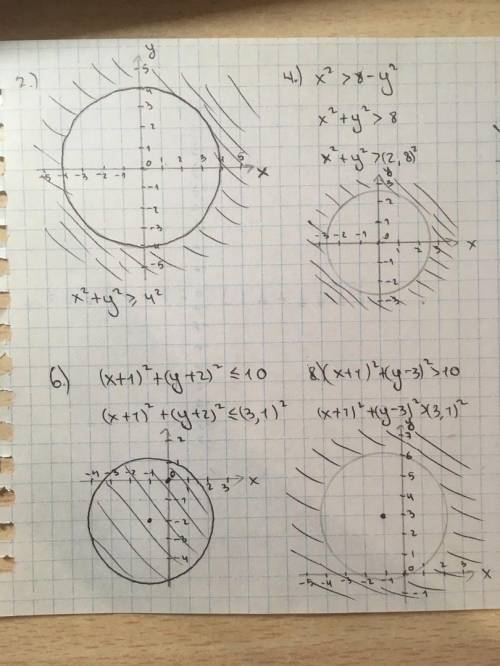 2.)
y
5
4
3
2
1
-5 -4 -3 -2 -1 0 1 2 3 4 5 x
-1
-2
-3
-4
-5
x² + y² ⩾ 4²
4.) x² > 8 - y²
x² + y² > 8
x² + y² > (2,8)²
y
3
2
1
-3 -2 -1 0 1 2 3 x
-1
-2
-3
6.) (x+1)² + (y+2)² ≤ 10
(x+1)² + (y+2)² ≤ (3,1)²
2
-4 -3 -2 -1 0 1 2 3 x
-1
-2
-3
-4
8.) (x+1)² + (y-3)² > 10
(x+1)² + (y-3)² > (3,1)²
y
7
6
5
4
3
2
1
-5 -4 -3 -2 -1 0 1 2 3 x
-1